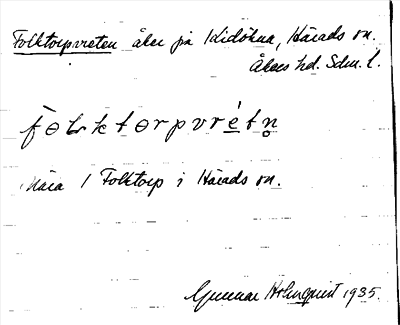 Folktorpvreten åker på Kidökna, Härads sn.
Åkers hd. Sdm. l.
fòlktorpvrétn̥
nära 1 Folktorp i Härads sn.
Gunnar Holmquist 1935.